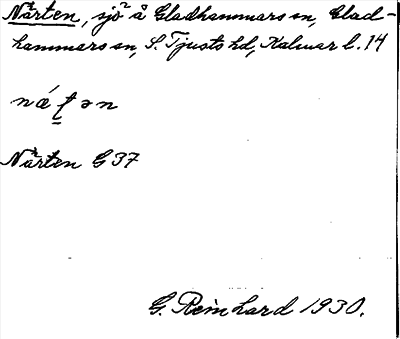 Nårten, sjö² å Gladhammars sn, Glad-
hammars sn, S. Tjusts hd, Kalmar l. 14
Nårten G 37
G. Reinhard 1930.